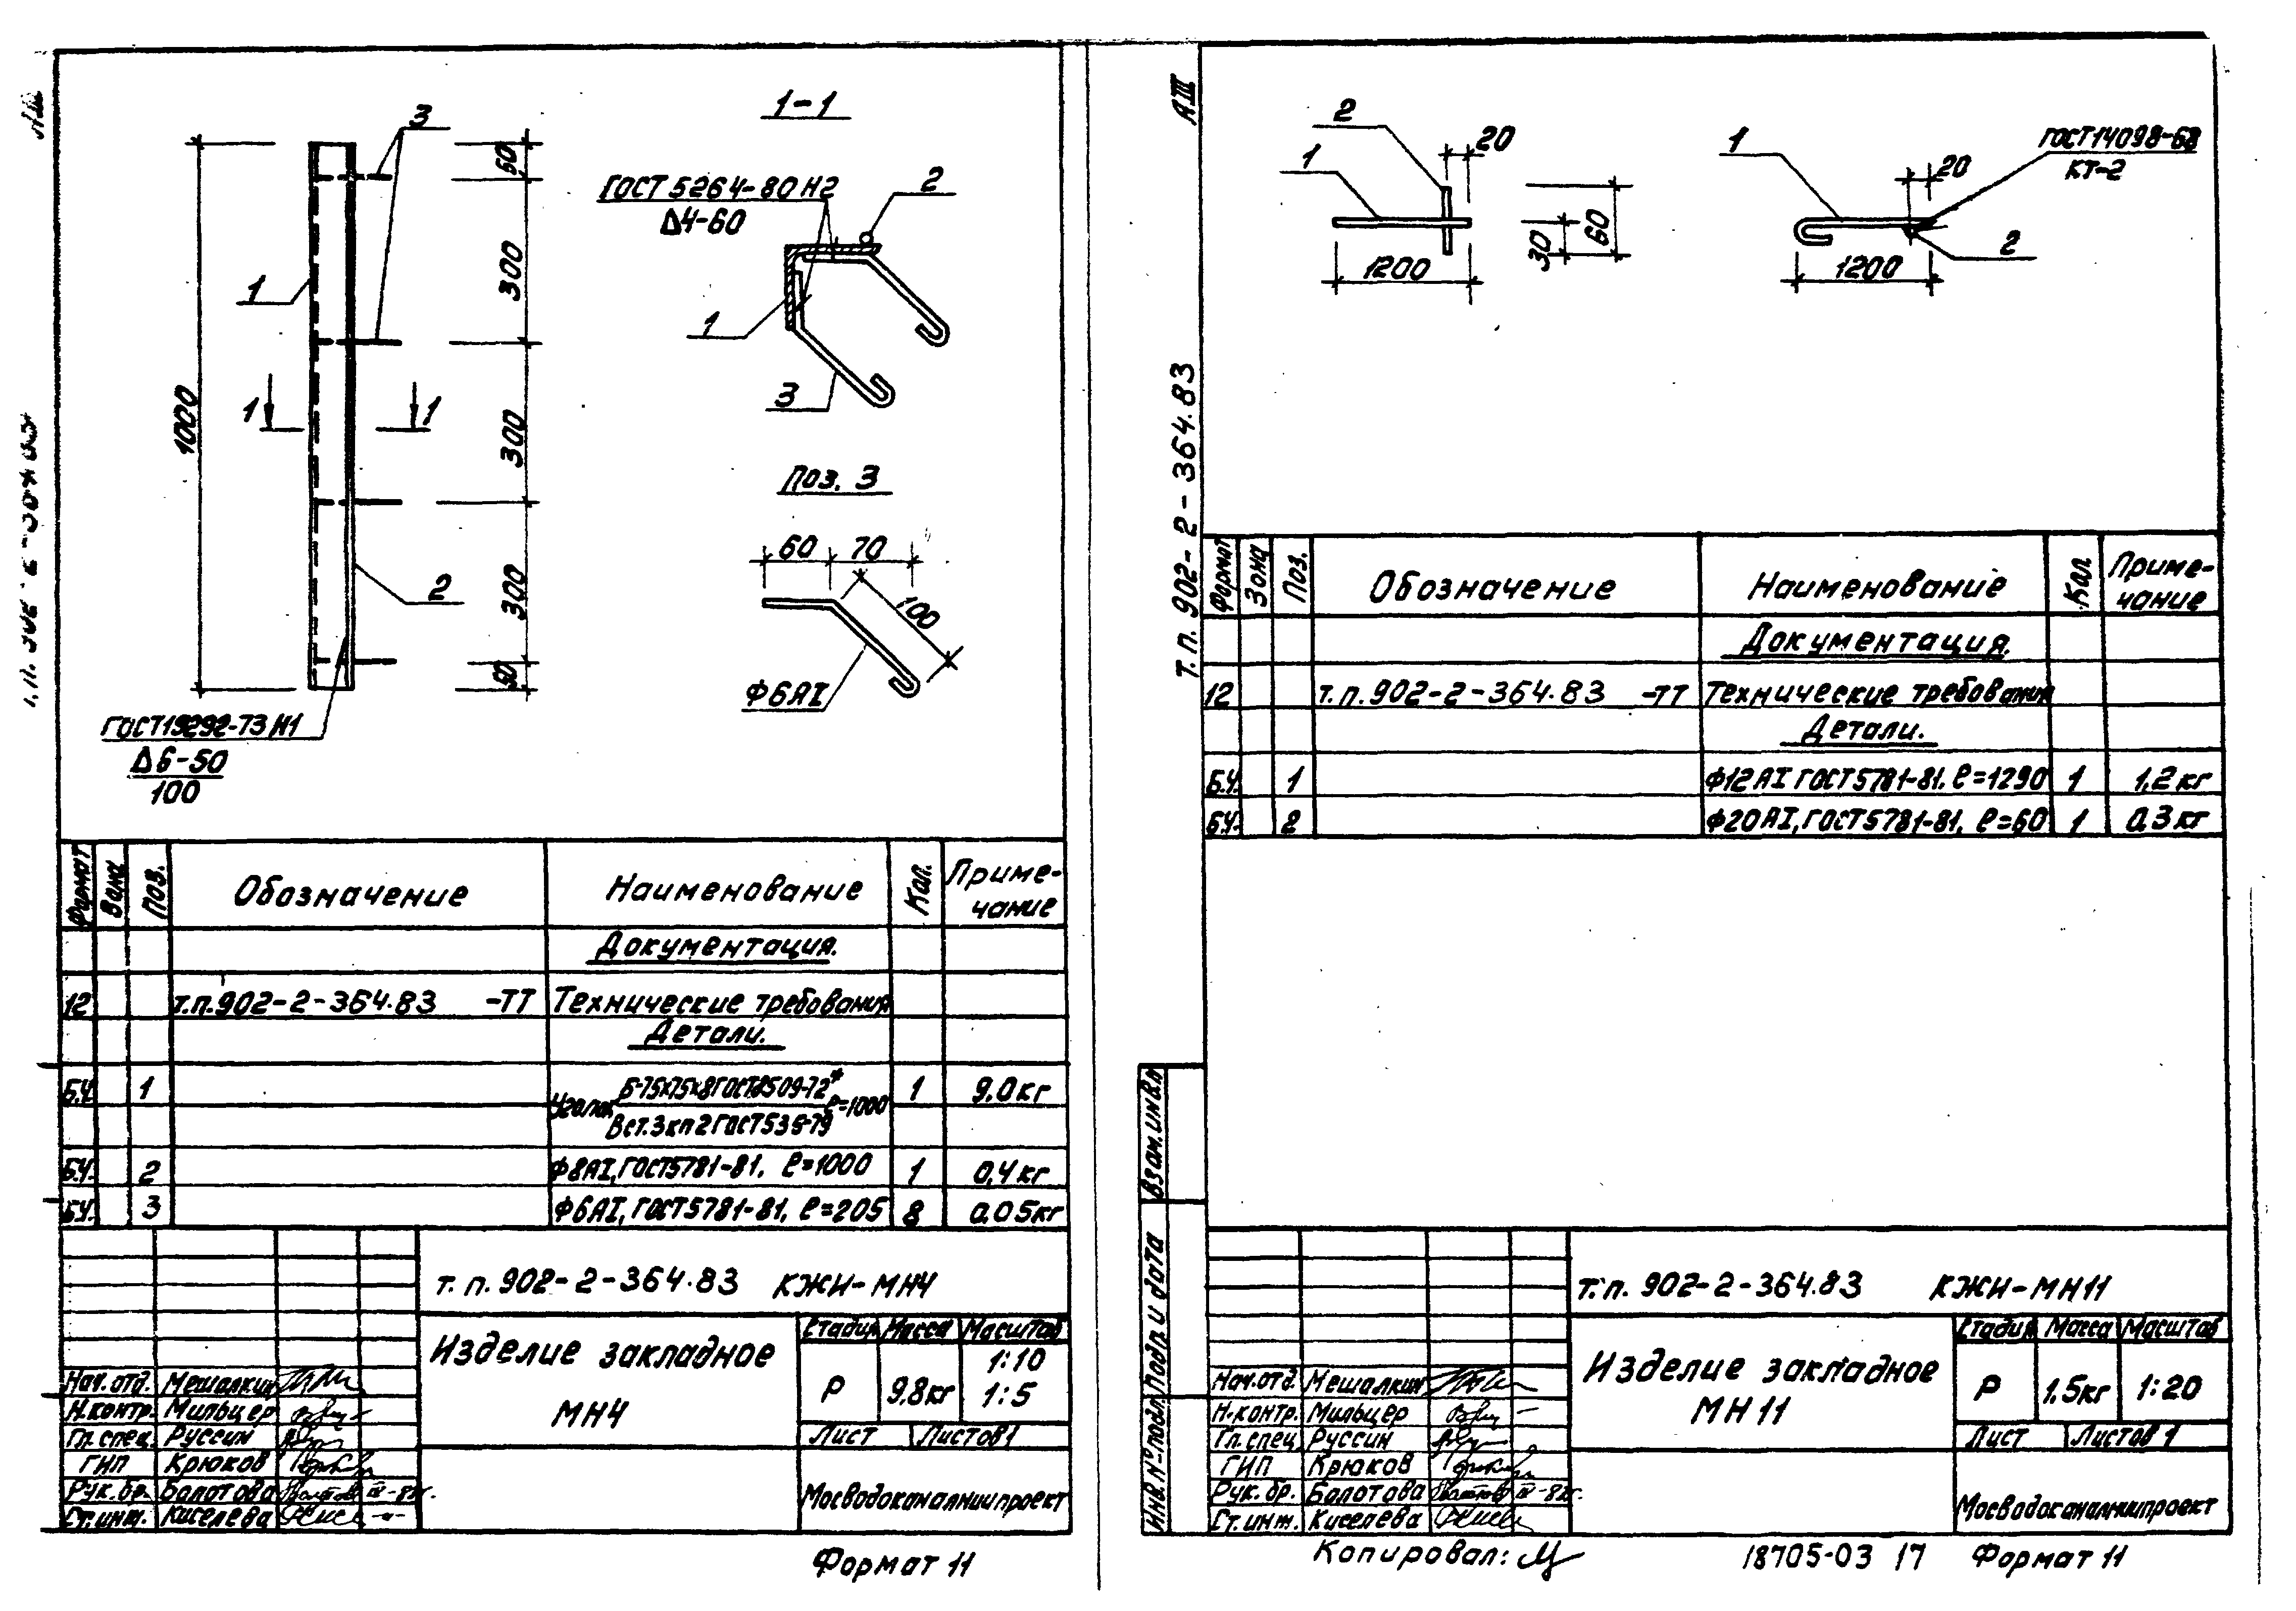 1-1
3
50
ГОСТ 5264-80 Н2
Δ4-60
2
300
1
1
1000
1
1
300
3
Поз. 3
60
70
100
2
300
Ф6АI
50
ГОСТ19292-73 Н1
Δ6-50
100
Формат
Зона
Поз.
Обозначение
Наименование
Кол.
Приме-
чание
Документация.
12
т.п.902-2-364.83 -ТТ
Технические требования
Детали.
Б.Ч.
1
Уголок
Б-75х75х8ГОСТ8509-72*
Вст.3кп2ГОСТ535-79
ℓ=1000
1
9.0кг
Б.Ч.
2
Ф8АI,ГОСТ5781-81, ℓ=1000
1
0,4кг
Б.Ч.
3
Ф6АI,ГОСТ5781-81, ℓ=205
8
0.05кг
т.п.902-2-364.83 КЖИ-МН4
Изделие закладное
МН4
Стадия
Масса
Масштаб
Р
9.8кг
1:10
1:5
Лист
Листов1
Мосводоканалниипроект
Нач.отд. Мешалкин
Н.контр. Мильцер
Гл.спец. Руссин
ГИП Крюков
Рук.бр. Болотова
Ст.инж. Киселева
Формат 11
АIII
т.п. 902-2-364.83
2
20
1
30
60
1200
1
ГОСТ14098-68
КТ-2
20
2
1200
Формат
Зона
Поз.
Обозначение
Наименование
Кол.
Приме-
чание
Документация.
12
т.п.902-2-364.83 -ТТ
Технические требования
Детали.
Б.Ч.
1
Ф12АI ГОСТ5781-81, ℓ=1290
1
1,2кг
Б.Ч.
2
Ф20АI,ГОСТ5781-81, ℓ=60
1
0.3кг
Взам.инв.№
Подп. и дата
Инв.№подл.
т.п. 902-2-364.83 КЖИ-МН11
Изделие закладное
МН11
Стадия
Масса
Масштаб
Р
1.5кг
1:20
Лист
Листов 1
Мосводоканалниипроект
Нач.отд. Мешалкин
Н.контр. Мильцер
Гл.спец. Руссин
ГИП Крюков
Рук.бр. Болотова
Ст.инж. Киселева
Копировал:
18705-03 17
Формат 11